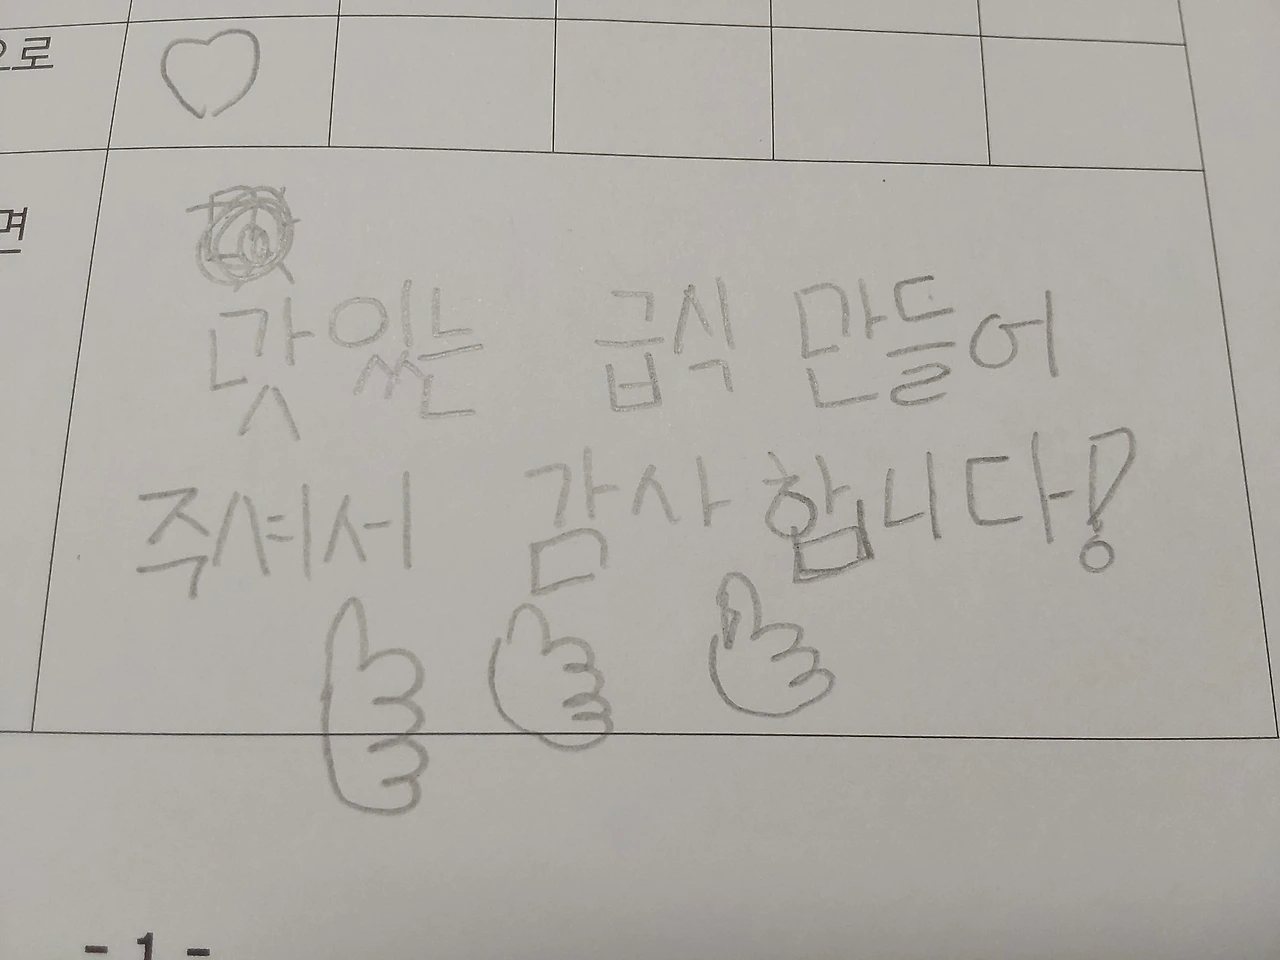 으로
면
맛있는 급식 만들어
주셔서 감사합니다!
- 1 -